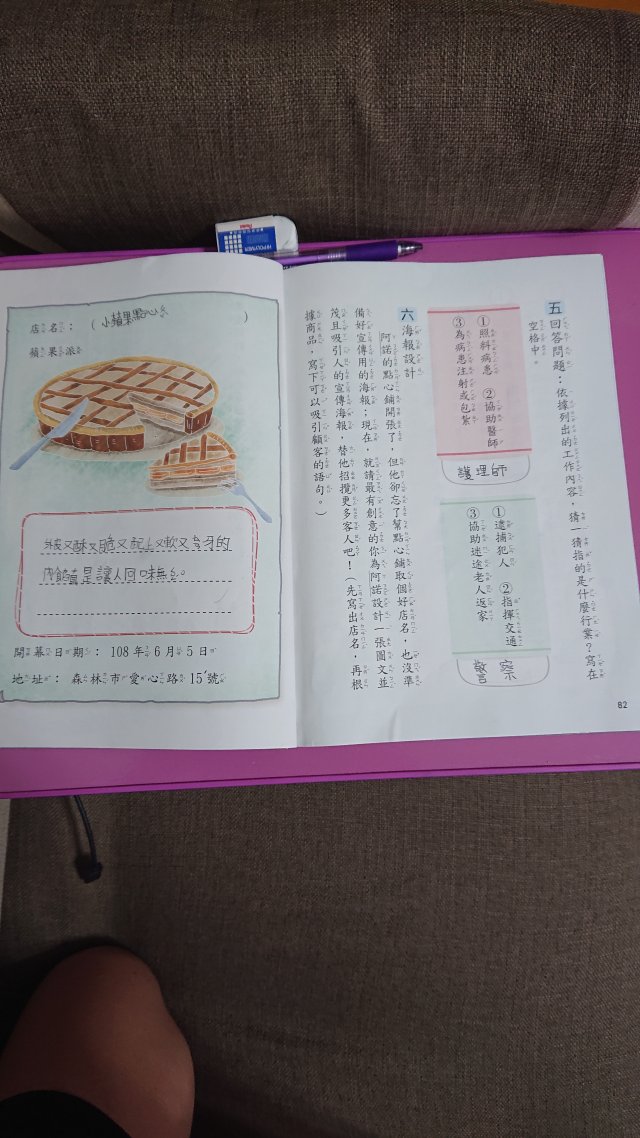 五 回答問題：依據列出的工作內容，猜一猜指的是什麼行業？寫在
空格中。
①照料病患 ②協助醫師
③為病患注射或包紮
護理師
①逮捕犯人 ②指揮交通
③協助迷途老人返家
警察
六 海報設計
阿諾的點心鋪開張了，但他卻忘了幫點心鋪取個好店名，也沒準
備好宣傳用的海報；現在，就請最有創意的你為阿諾設計一張圖文並
茂且吸引人的宣傳海報，替他招攬更多客人吧！（先寫出店名，再根
據商品，寫下可以吸引顧客的語句。）
82
店名：（小蘋果點心 ）
蘋果派
外皮又酥又脆又配上又軟又 牙的
內餡真是讓人回味無 。
開幕日期：108年6月5日
地址：森林市愛心路15號
HI-POLYMER
Pentel